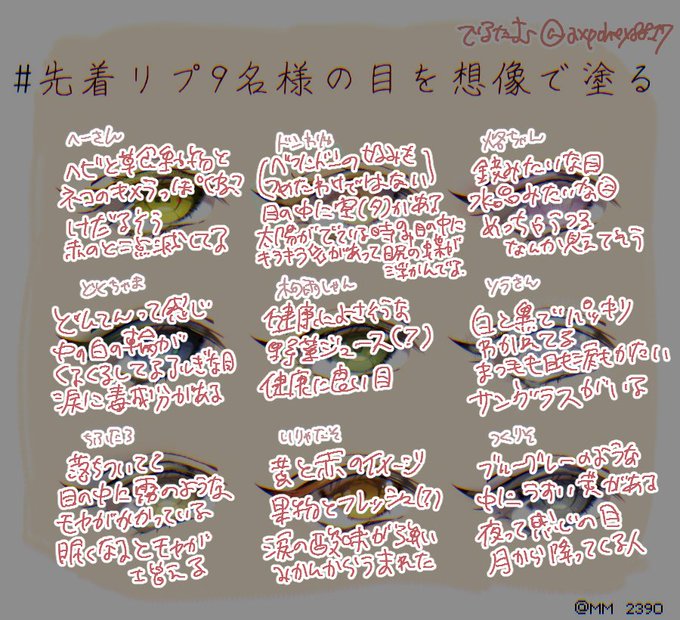 でるたむ
#先着リプ9名様の目を想像で塗る
へーさん
ヘビと草食
ネコのキメラっぽ
けだるそう
赤のとこ点滅してる
つめたわけではない)
目の中に空(夕)があって
太陽がでてない時のみ目の中に
キラキラ があって瞳の蝶が
浮かんでる。
烙ちゃん
鏡みたいな目
水晶みたいな目
めっちゃうつる
なんか見えてそう
どくちゃま
どんてんって感じ
中の目の輪が
くるくるしてるふしぎな目
涙に毒成分がある
和雨しゃん
健康によさそうな
野菜ジュース(?)
健康に良い目
ソラさん
白と黒でパッキリ
分かれてる
まつ毛も目も涙もかたい
サングラスがいる
落ちついてて
目の中に霧のような、
モヤがかかっている
眠くなるとモヤが
増える
いりゃたそ
黄と赤のイメージ
果物とフレッシュ(?)
涙の酸味が強い
みかんからうまれた
つくりそ
ブルーグレーのような
中にうすい黄がある
夜って感じの目
月から降ってくる人
@MM 2390